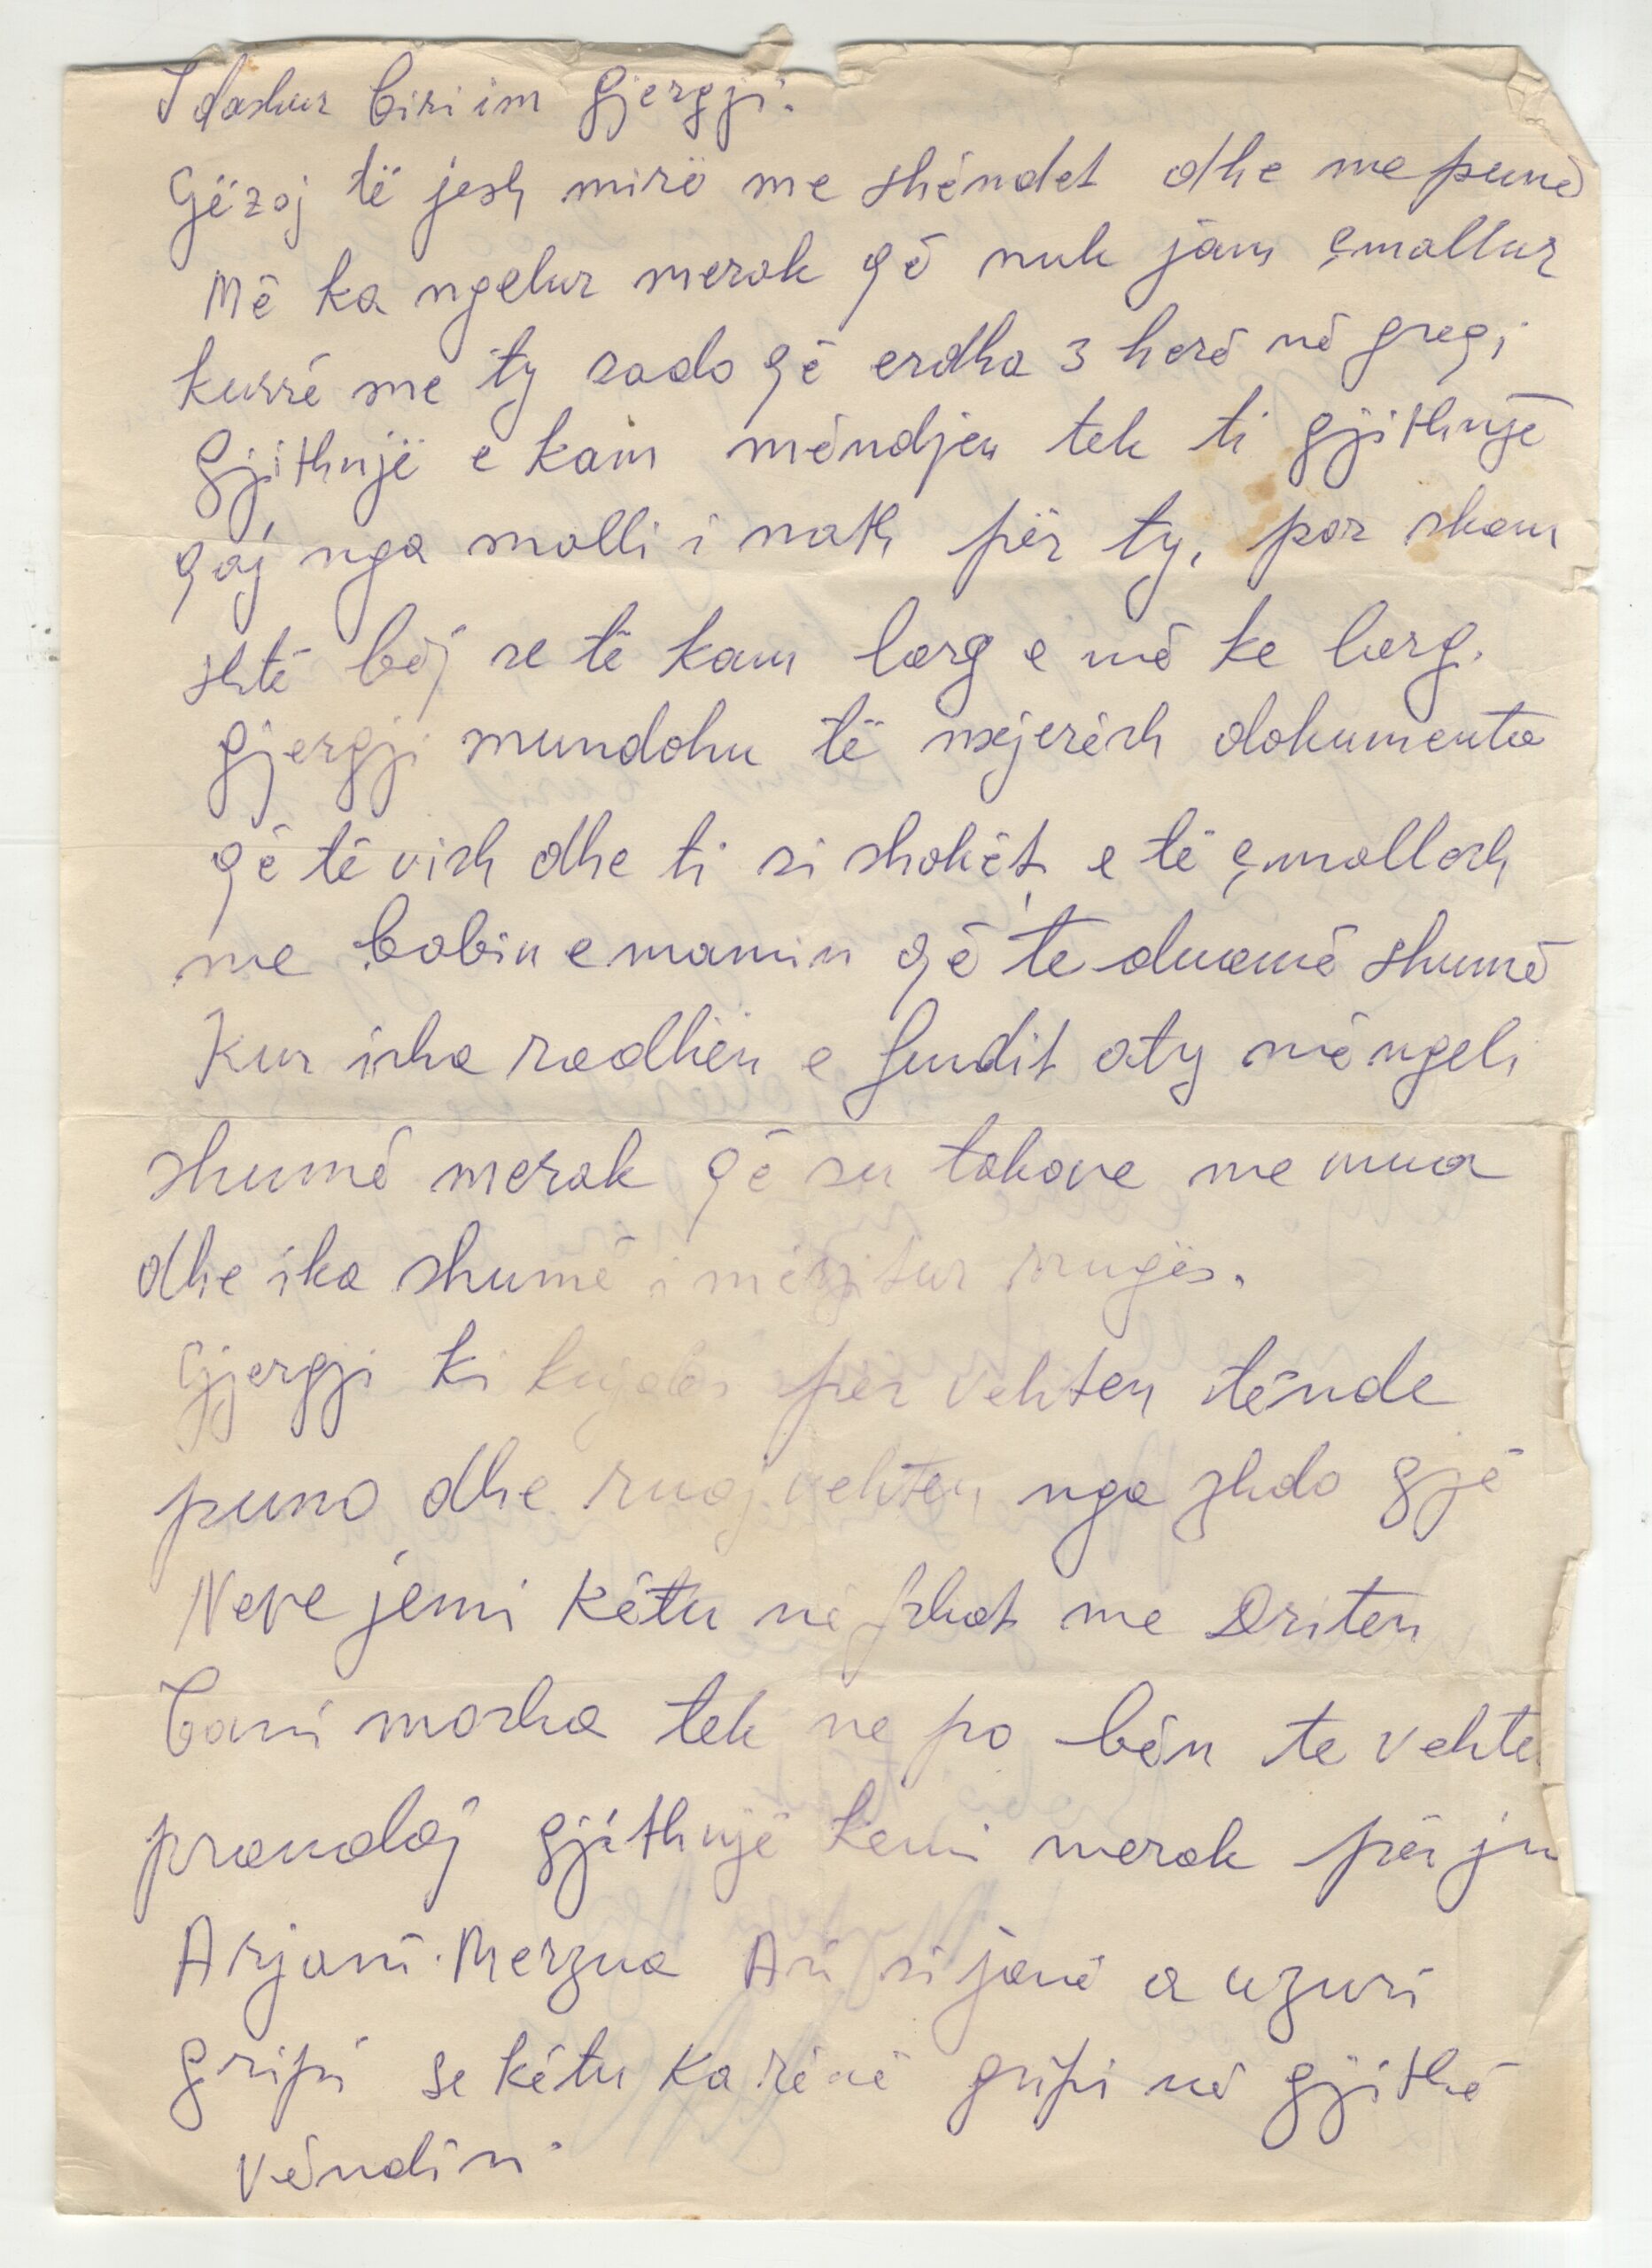 I dashur biri im Gjergji.
Gëzoj të jesh mirë me shëndet dhe me punë
Më ka ngelur merak që nuk jam çmallur
kurrë me ty sado që erdha 3 herë në greqi
Gjithnjë e kam mëndjen tek ti gjithnjë
qaj nga malli i math për ty, por skam
shtë bëj se të kam larg e më ke larg.
Gjergji mundohu të nxjerësh dokumenta
që të vish dhe ti si shokët e të çmallesh
me babin e mamin që te duamë shumë
Kur isha radhën e fundit aty më ngeli
shumë merak që su takove me mua
dhe ika shumë i mërzitur rrugës.
Gjergji ki kujdes për vehten tënde
puno dhe ruaj vehten nga zhdo gjë
Neve jemi këtu në fshat me Driten
tani mosha tek ne po bën te vehte
prandaj gjithnjë kemi merak për ju
Arjani. Merzua Ari si janë a uzuri
gripi se këtu Ka rënë gripi në gjithë
vëndin.